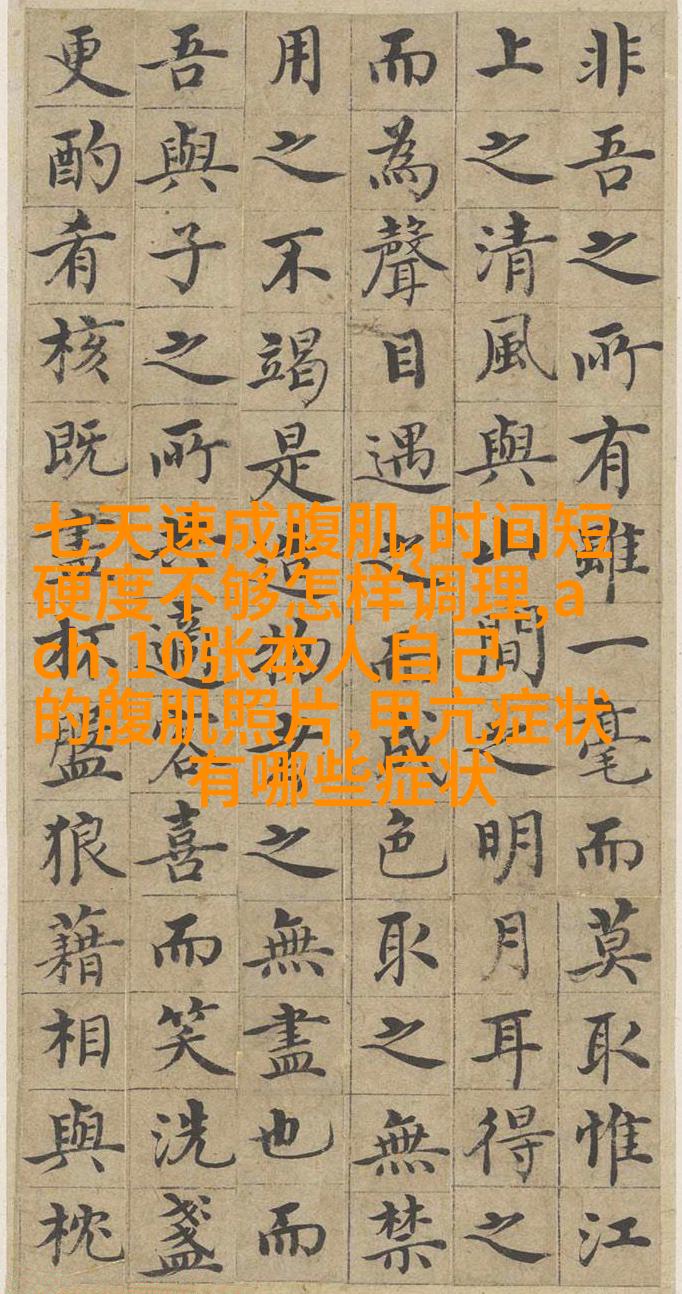 非吾之所有雖一毫而莫取惟江
上之清風與間之明月耳得之
而為聲目遇之而成色取之無禁
用之不竭是造物之無盡也而
吾與子之所適客喜而笑洗盞
更酌肴核既盡杯盤狼藉相與枕
七天速成腹肌,时间短
硬度不够怎样调理,a
ch,10张本人自己
的腹肌照片,甲亢症状
有哪些症状